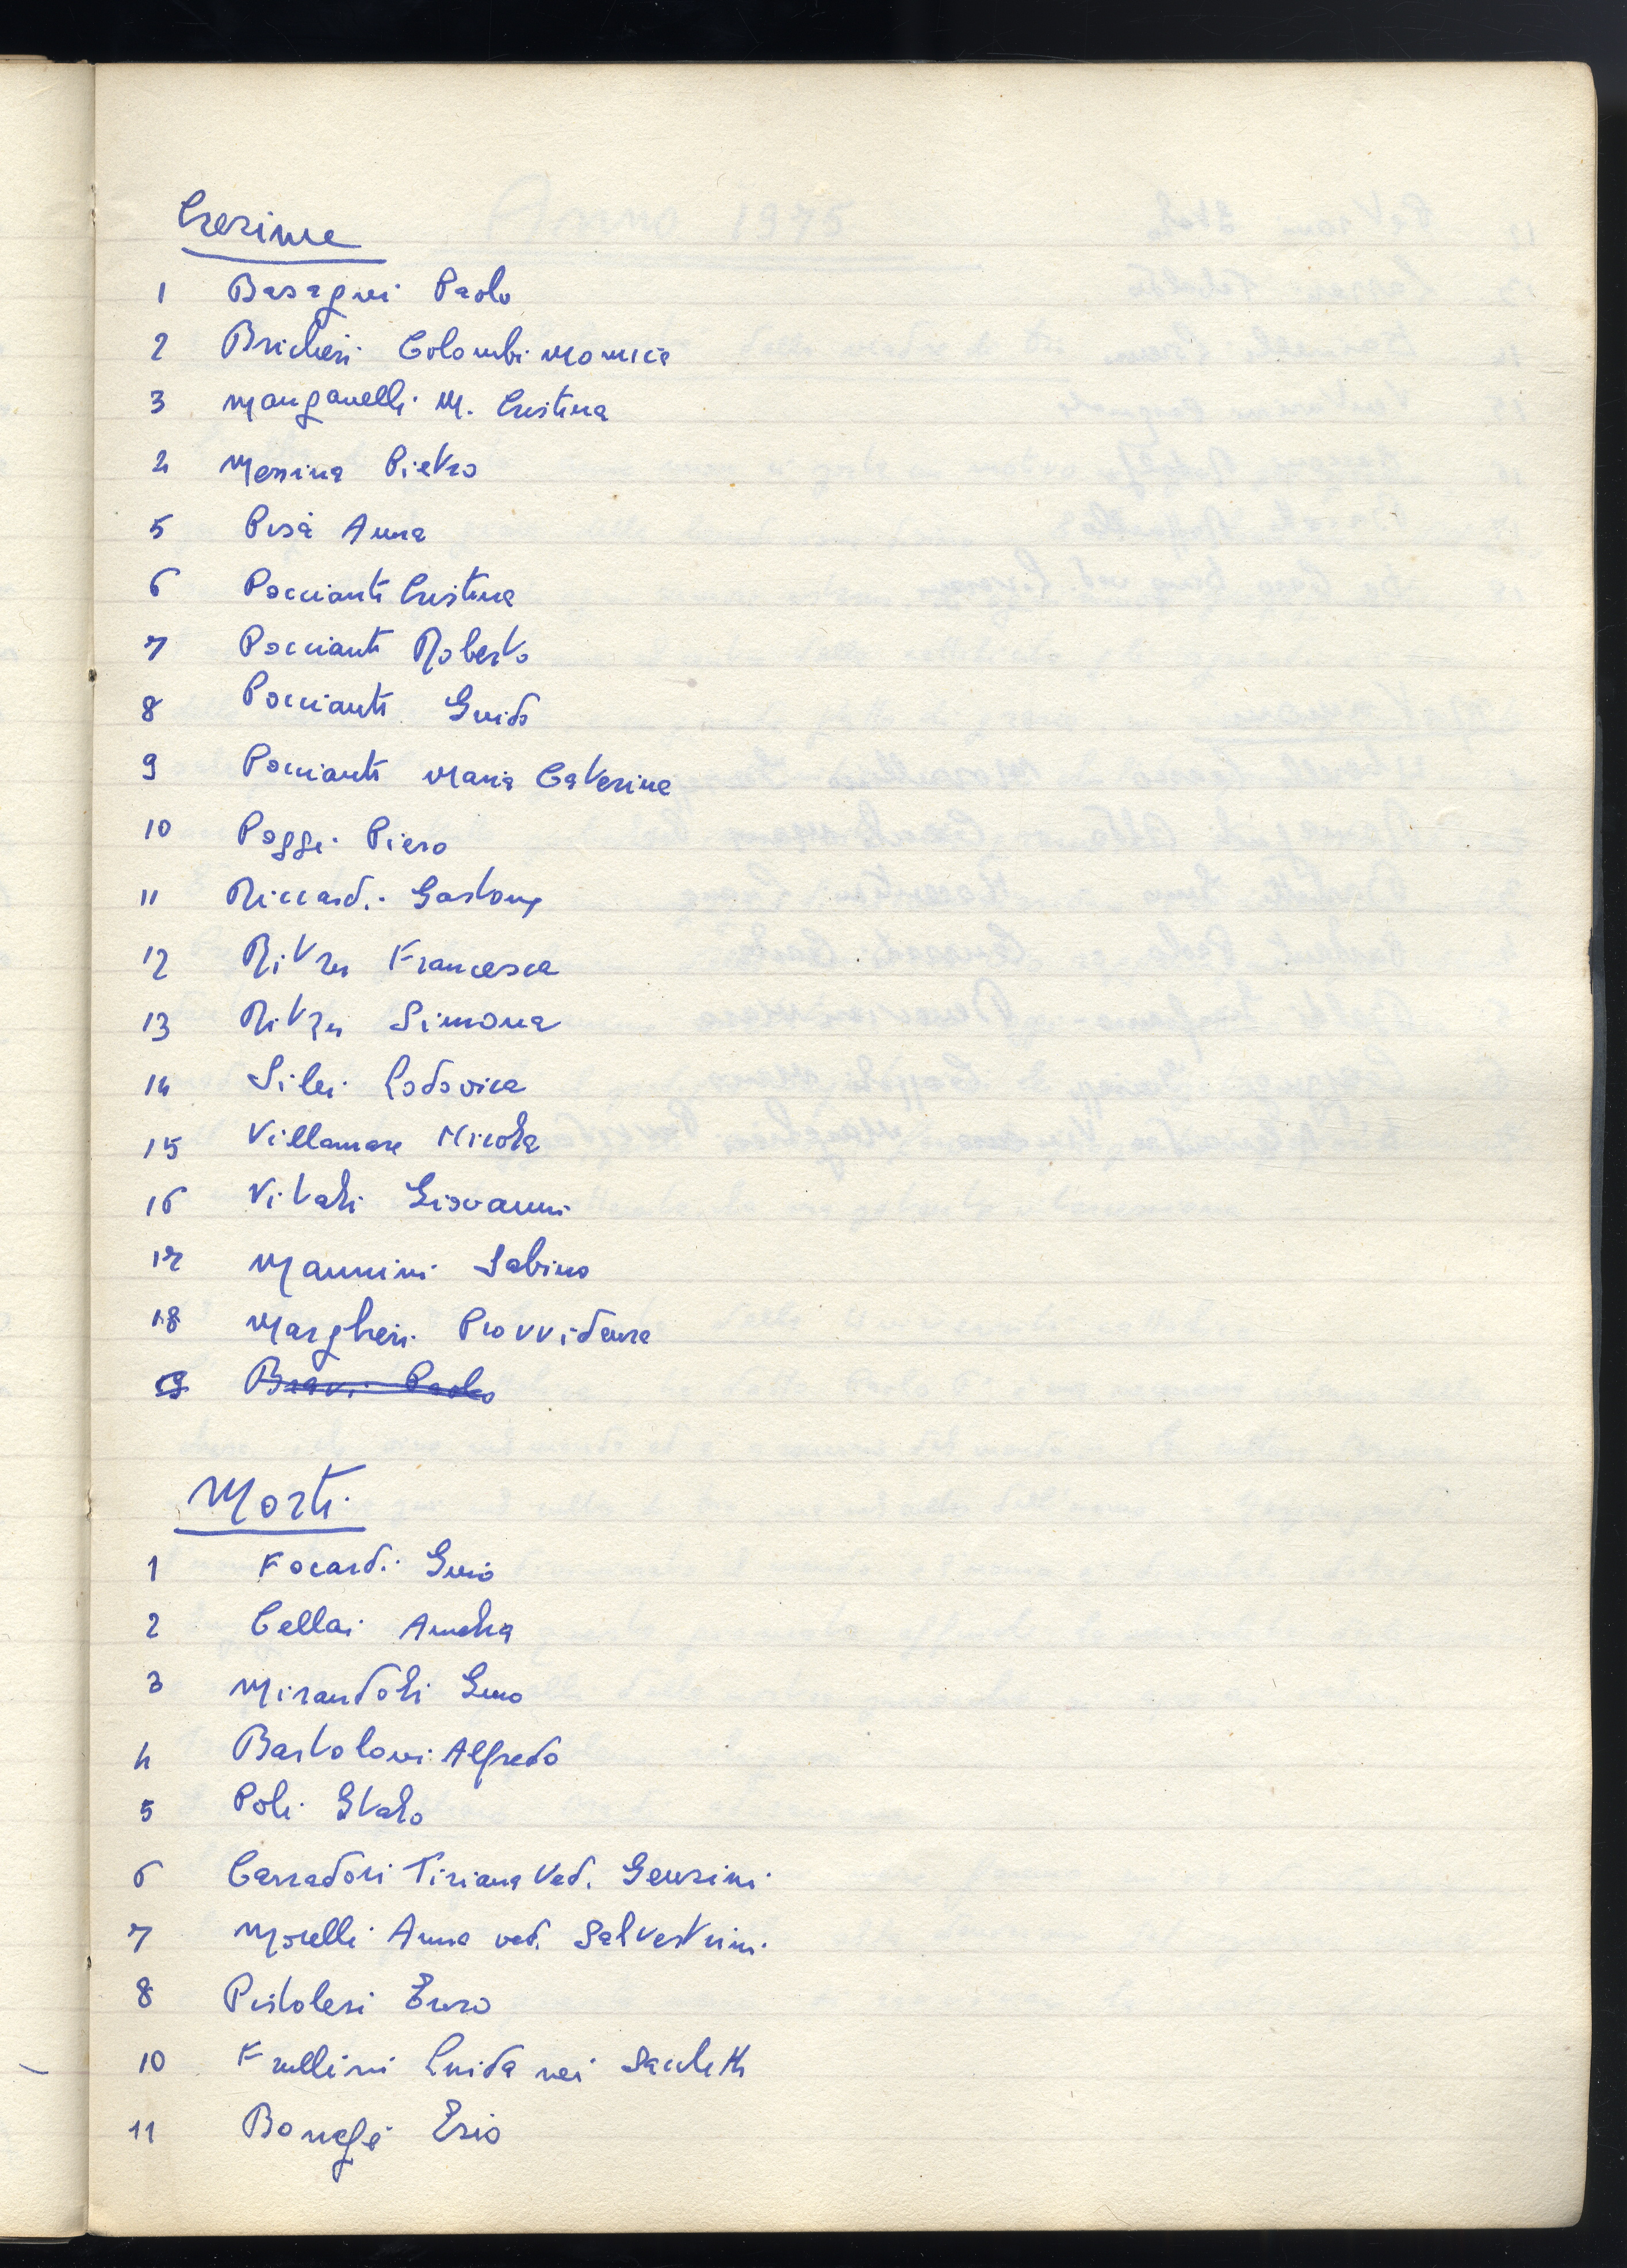 Cresime
1 Basagni Paolo
2 Bricheri Colombi Monica
3 Manganelli M. Cristina
4 Messina Pietro
5 Pisà Anna
6 Poccianti Cristina
7 Poccianti Roberto
8 Poccianti Guido
9 Poccianti Maria Caterina
10 Poggi Piero
11 Riccardi Gastone
12 Ritzu Francesca
13 Ritzu Simona
14 Silei Lodovica
15 Villamare Nicola
16 Vitali Giovanni
17 Mannini Sabina
18 Margheri Provvidenza
19 Bravi Paolo
Morti
1 Focardi Gino
2 Cellai Amelia
3 Mirandoli Gino
4 Bartolozzi Alfredo
5 Poli Italo
6 Carradori Tiziana Ved. Gensini
7 Morelli Anna ved. Salvestrini
8 Pistolesi Enzo
10 Frullini Guida nei Sacchetti
11 Bonegi Ezio